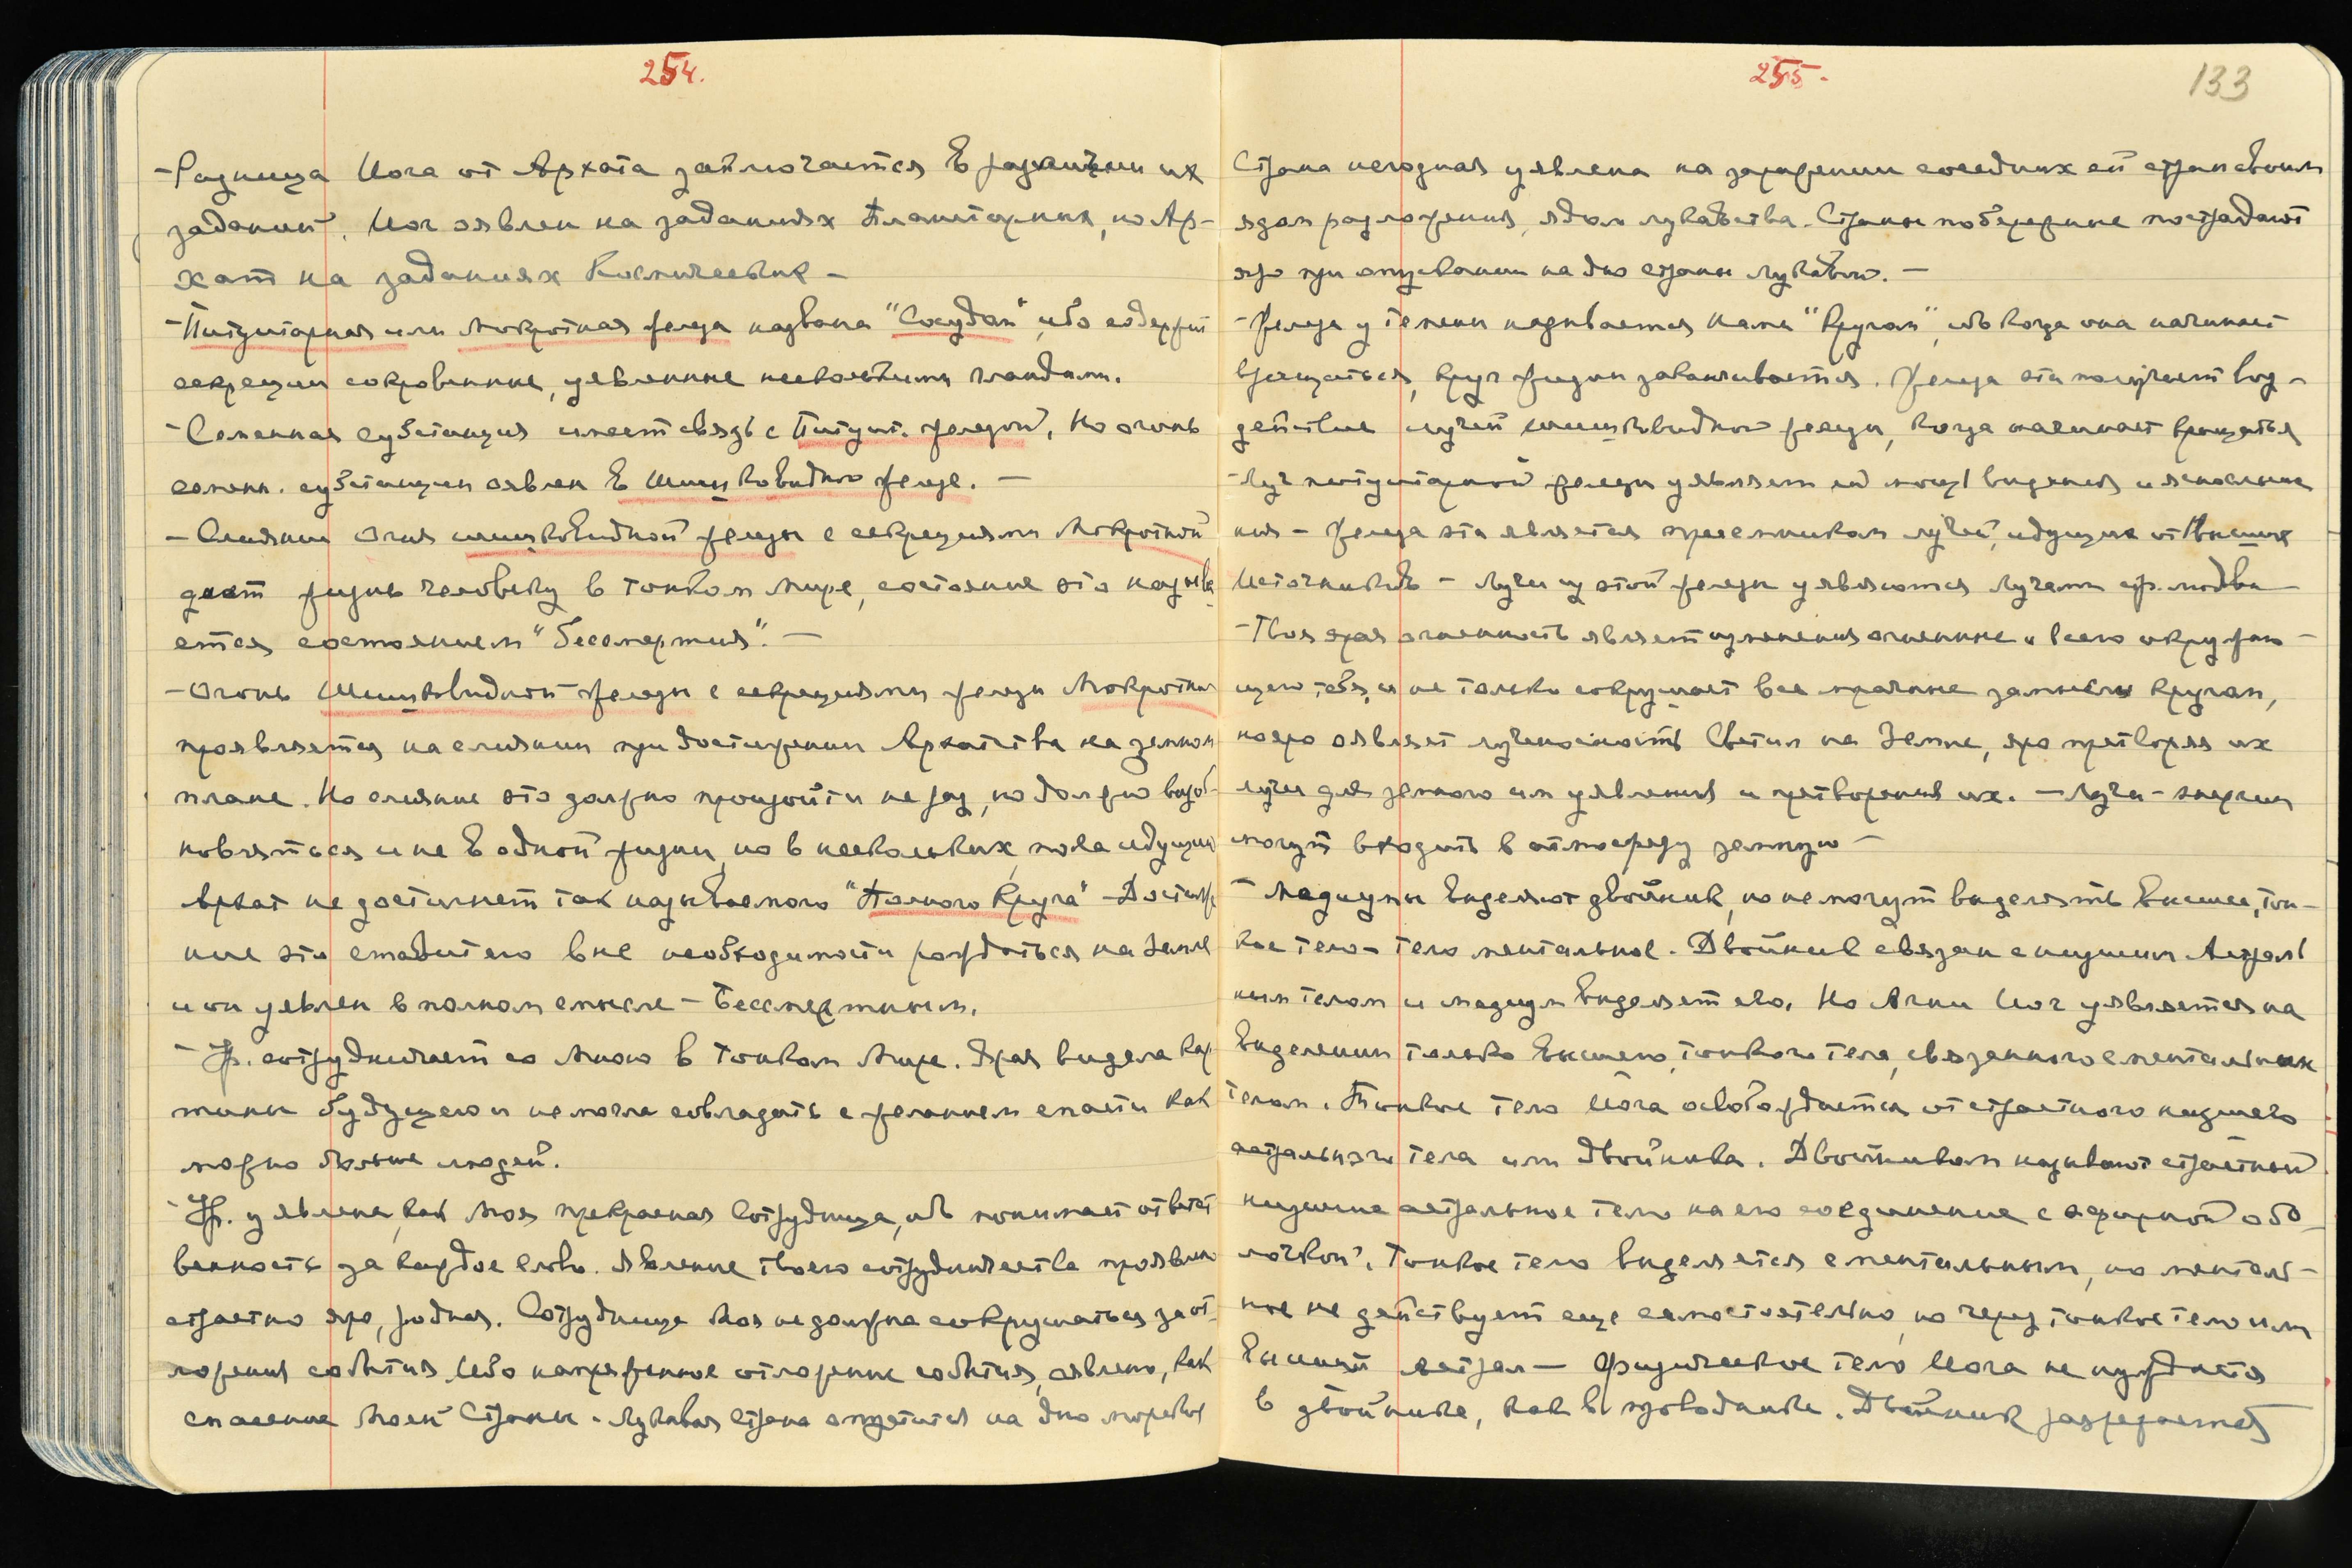 254.
- Разница Йога от Архата заключается в различии их
заданий. Йог оявлен на заданиях Планетарных, но Ар-
хат на заданиях Космических -
- Питуитарная или Мокротная железа названа "Сосудом", ибо содержит
секреции сокровенные, уявленные несколькими гландами.
- Семенная субстанция имеет связь с Питуит. железой, но огонь
семенн. субстанции оявлен в Шишковидной железе. -
- Слияние Огня шишковидной железы с секрециями Мокротной
дает жизнь человеку в тонком Мире, состояние это называ
ется состоянием "бессмертия". -
- Огонь Шишковидной железы с секрециями железы Мокротной
проявляется на слиянии при достижении Архатства на земном
плане. Но слияние это должно произойти не раз, но должно возоб-
новляться и не в одной жизни, но в нескольких, пока идущий
Архат не достигнет так называемого "Полного Круга" - Достиже
ние это ставит его вне необходимости рождаться на Земле
и он уявлен в полном смысле - Бессмертным.
- Ур. сотрудничает со Мною в тонком Мире. Ярая видела кар
тины будущего и не могла совладать с желанием спасти как
можно больше людей.
- Ур. уявлена, как Моя прекрасная Сотрудница, ибо понимает ответст
венность за каждое слово. Явление твоего сотрудничества проявлено
страстно яро, родная. Сотрудница Моя не должна сокрушаться за от-
ложения события Ибо напряженное отложение события, оявлено, как
спасение Моей Страны. Лукавая страна опустится на дно морское
255.
133
Страна негодная уявлена на заражении соседних ей стран своим
ядом разложения, ядом лукавства. Страны побережные пострадают
яро при опускании на дно страны Лукавой. -
- Железа у темени называется Нами "Кругом", ибо когда она начинает
вращаться, круг жизни заканчивается. Железа эта получает воз-
действие лучей шишковидной железы, когда начинает вращаться
- Луч питуитарной железы уявляет ей мощь видения и яснослыша
ния - Железа эта является приемником лучей, идущих от Высших
Источников - Лучи из этой железы уявляются Лучами ср. любви
- Твоя ярая огненность являет изменения огненные и всего окружаю-
щего тебя, и не только сокрушает все мрачные замыслы кругом,
но яро оявляет лученосность Светил на Земле, яро претворяя их
лучи для земного им уявления и претворения их. - Лучи-энергии
могут входить в атмосферу земную -
- Медиумы выделяют двойник, но не могут выделять высшее, тон-
кое тело - тело ментальное. Двойник связан с низшим Астраль
ным телом и медиум выделяет его. Но Агни Йог уявляется на
выделении только высшего, тонкого тела, связанного с ментальным
телом. Тонкое тело Йога освобождается от страстного низшего
астрального тела или двойника. Двойником называют страстное
низшее астральное тело на его соединение с эфирной обо
лочкой. Тонкое тело выделяется с ментальным, но менталь-
ное не действует еще самостоятельно, но через тонкое тело или
высший астрал - Физическое тело Йога не нуждается
в двойнике, как в проводнике. Двойник разрежается